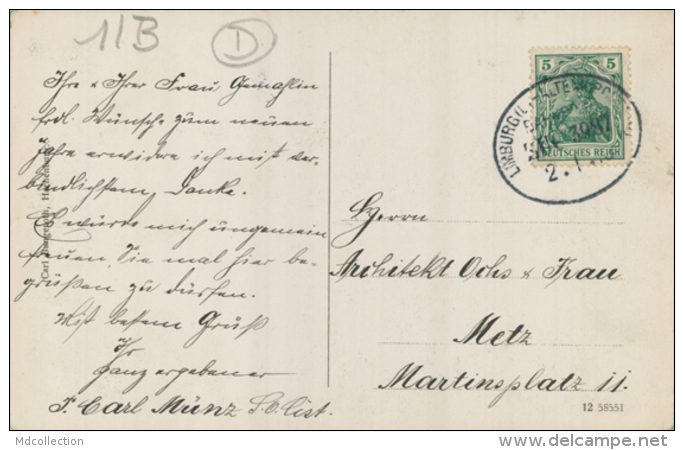 11B D
Ihre & Ihrer Frau Gemahlin
frdl. Wünsche zum neuen
Jahre erwidere ich mit ver-
bindlichstem Danke.
Es würde mich ungemein
freuen, Sie mal hier be-
grüßen zu dürfen.
Mit bestem Gruß
Ihr
ganz ergebener
J. Carl Münz
5 5
DEUTSCHES REICH
LIMBURG
2.
Herrn
Architekt Ochs & Frau
Metz
Martinsplatz 11.
12 58551
Carl
Mdcollection
www.delcampe.net